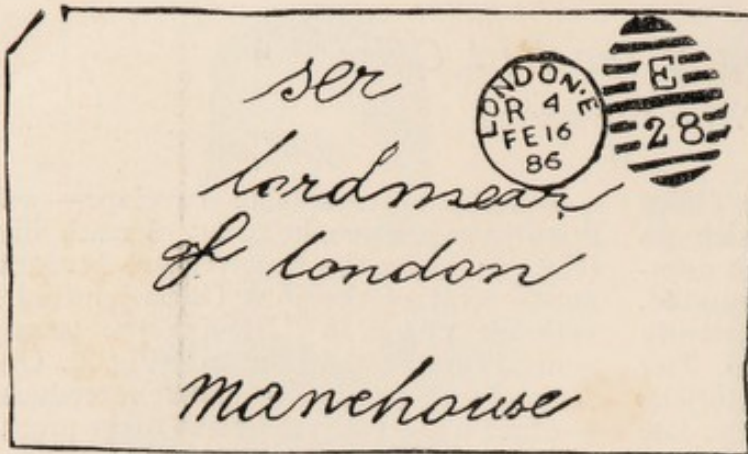 ser
LONDON·E
R 4
FE16
86
E
28
lordmear
of london
manehouse